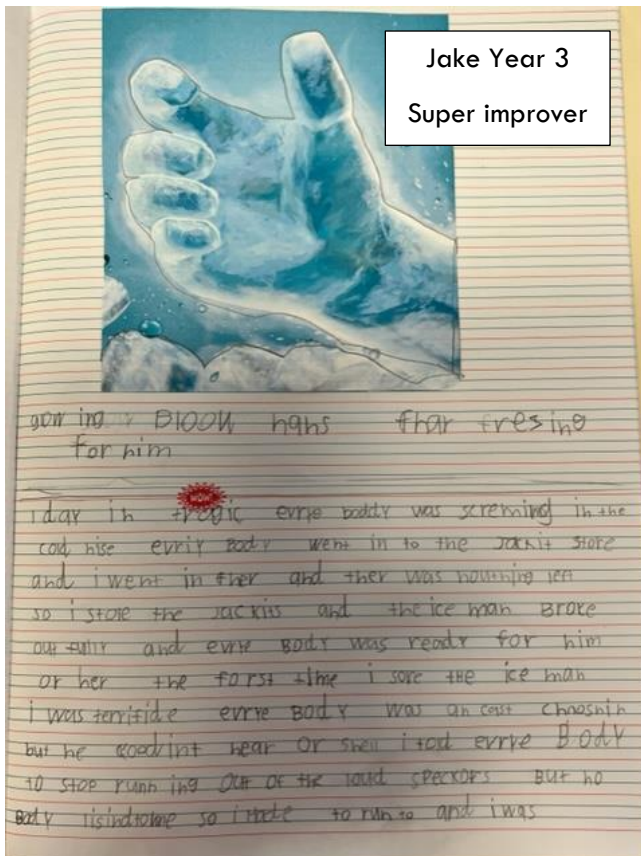 Jake Year 3
Super improver
gow ing BlooW hans thar fresing
for him
WOW!
i day in tregic evrie boddy was screming in the
cold hise evriy Body went in to the Jackit store
and i went in ther and ther was nouthing left
so i stole the Jackits and the ice man Broke
out fully and evrie Body was ready for him
or her the forst time i sore the ice man
i was terrifide evrye Body was
but he coodint hear or smell i told evrye Body
to stop runn ing Out of the loud speckors But no
Body lisindtome so i to run to and i was